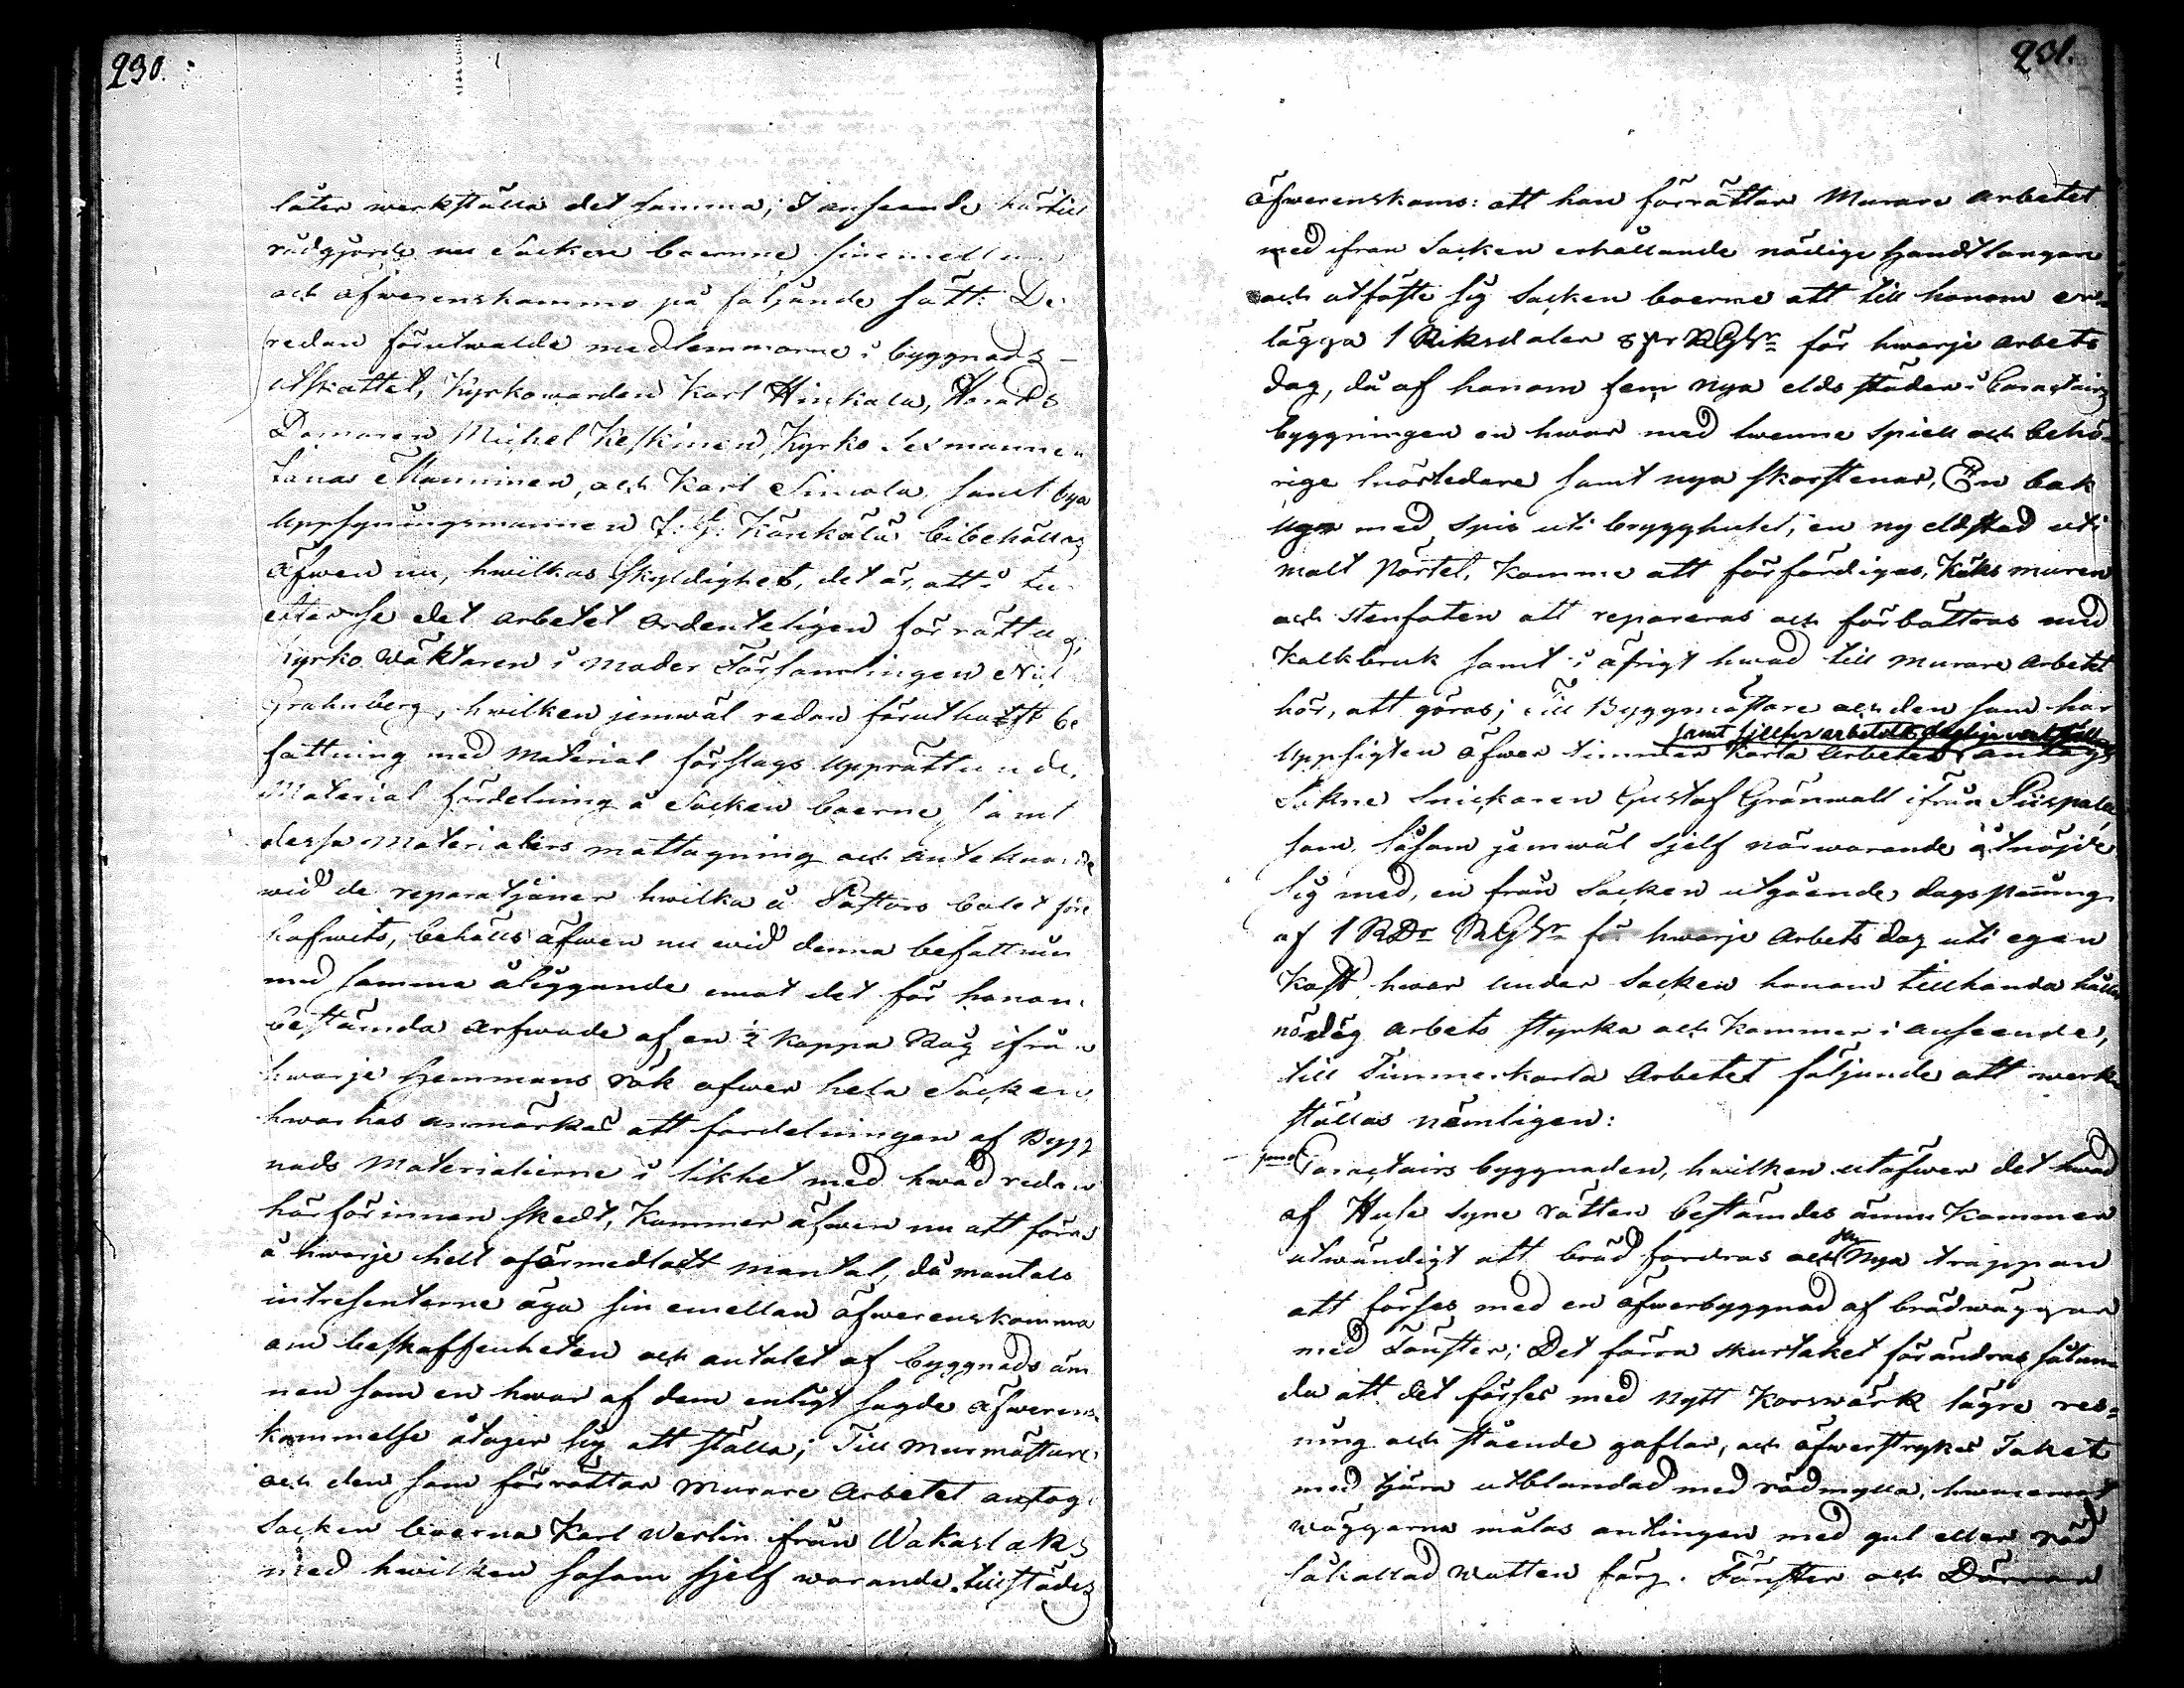 230.
låter werkställa det samma; I anseende härtill
rådgjorde nu Socken boerne sinemellan
och öfwerenskommo på följande sätt: De
redan förutwalde medlemmarne i byggnads-
utskottet, Kyrkowarden Karl Hinkala, Härads
Domaren Michel Keskinen, Kyrko Sexmannen
Jonas Manninen, och Karl Simola, samt bya
uppsyningsmannen J. H. Känkölä bibehållas
äfwen nu, hwilkas skyldighet, det är, att
efterse det arbetet ordenteligen förrättas;
Kyrko Wäktaren i Moder Församlingen Nils
Grahnberg, hwilken jemwäl redan förut haft be
fattning med Material förslags upprättande,
Material fördelning å Socken boerne, samt
dessa Materialiers mottagning och antecknande
wid de reparationer hwilka å Pastors bolet före
hafwits, behålls äfwen nu wid denna befattning
med samma åliggande emot det för honom
bestämda arfwode af en ½ kappa Råg ifrån
hwarje Hemmans rök öfwer hela Socken,
hwarhos anmärkes att fördelningen af Bygg
nads Materialierne i likhet med hwad redan
härförinnan skedt, kommer äfwen nu att föras
å hwarje helt oförmedlatt mantal, då mantals
intressenterne äga sin emellan öfwerenskomma
om beskaffenheten och antalet af byggnads äm
nen som en hwar af dem enligt sagde öfwerens
kommelse åtager sig att ställa; Till Murmästare
och den som förrättar Murare Arbetet antog
Socken boerna Karl Werlin ifrån Wakaslaks
med hwilken såsom sjelf warande tillstädes
231.
öfwerenskoms: att han förrättar Murare arbetet
med ifrån Socken erhållande nödige Handtlangare
och utfäste sig Socken boerne att till honom er-
lägga 1 Riksdaler RGSr för hwarje arbets
dag, då af honom fem nya eldstäder i Caractairs
byggningen en hwar med twenne spiell och behö-
rige snörledare samt nya skorstenar, En bak
ugn med spis uti brygghuset, en ny eldstad uti
malt Pörtet, komme att förfärdigas, Köks muren
och stenfoten att repareras och förbättras med
Kalkbruk samt i öfrigt hwad till murare arbetet
hör, att göras; Till Byggmästare och den som har
samt sjelfwa arbetets dagliga werkställ
uppsigten öfwer timmer karla arbeten antogs
Sokne Snickaren Gustaf Grönwall ifrån Piispala,
som, såsom jemwäl sjelf närwarande åtnöjde
sig med, en från Socken utgående, dagspenning
af 1 RDr RGSr för hwarje Arbets dag uti egen
Kost, hwar under Socken honom tillhanda håller
nödig arbets styrka och kommer i anseende,
till Timmerkarla Arbetet följande att werk
ställas nemligen:
Caractairs byggnaden, hwilken utöfwer det hwad
af Huse syne rätten bestämdes ännu kommer
utwändigt att bräd fordras och Nya trappan
att förses med en öfwerbyggnad af brädwäggar
med Fönster; Det förra skurtaket förändras sålun
da att det förses med nytt Korswärk lägre res=
ning och stående gaflar, och öfwerstrykes Taket
med tjära utblandad med rödmylla, hwaremot
wäggarna målas antingen med gul eller röd
såkallad watten färg. Fönster och Dörrar